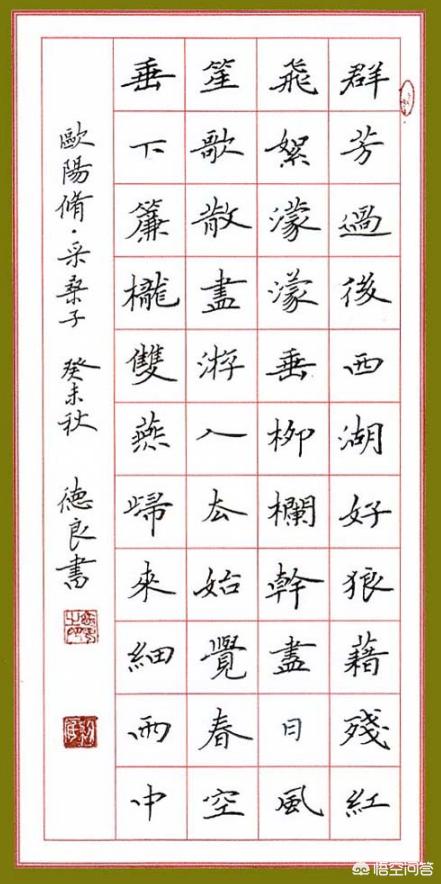 群芳過後西湖好狼藉殘紅
飛絮濛濛垂柳欄幹盡日風
笙歌散盡游人去始覺春空
垂下簾櫳雙燕歸來細雨中
歐陽脩·采桑子 癸未秋 德良書
悟空问答